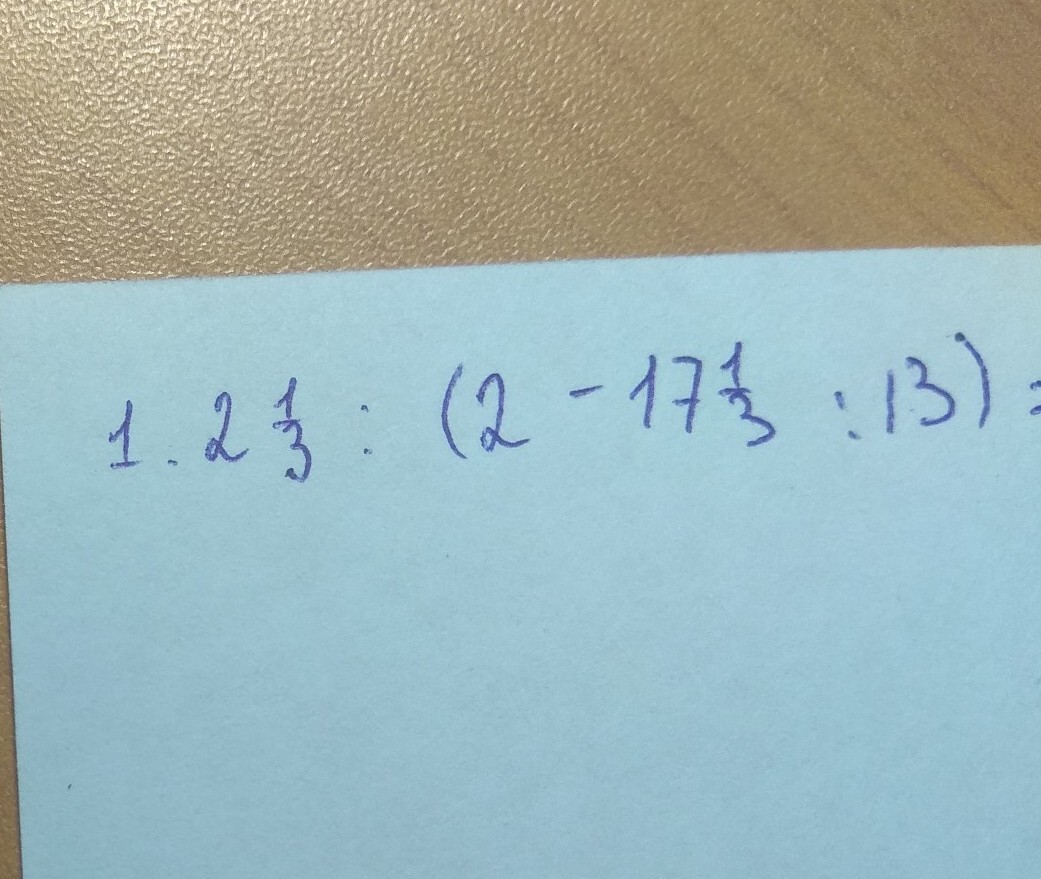 1. 2 1/3 : (2 - 17 1/3 : 13) =